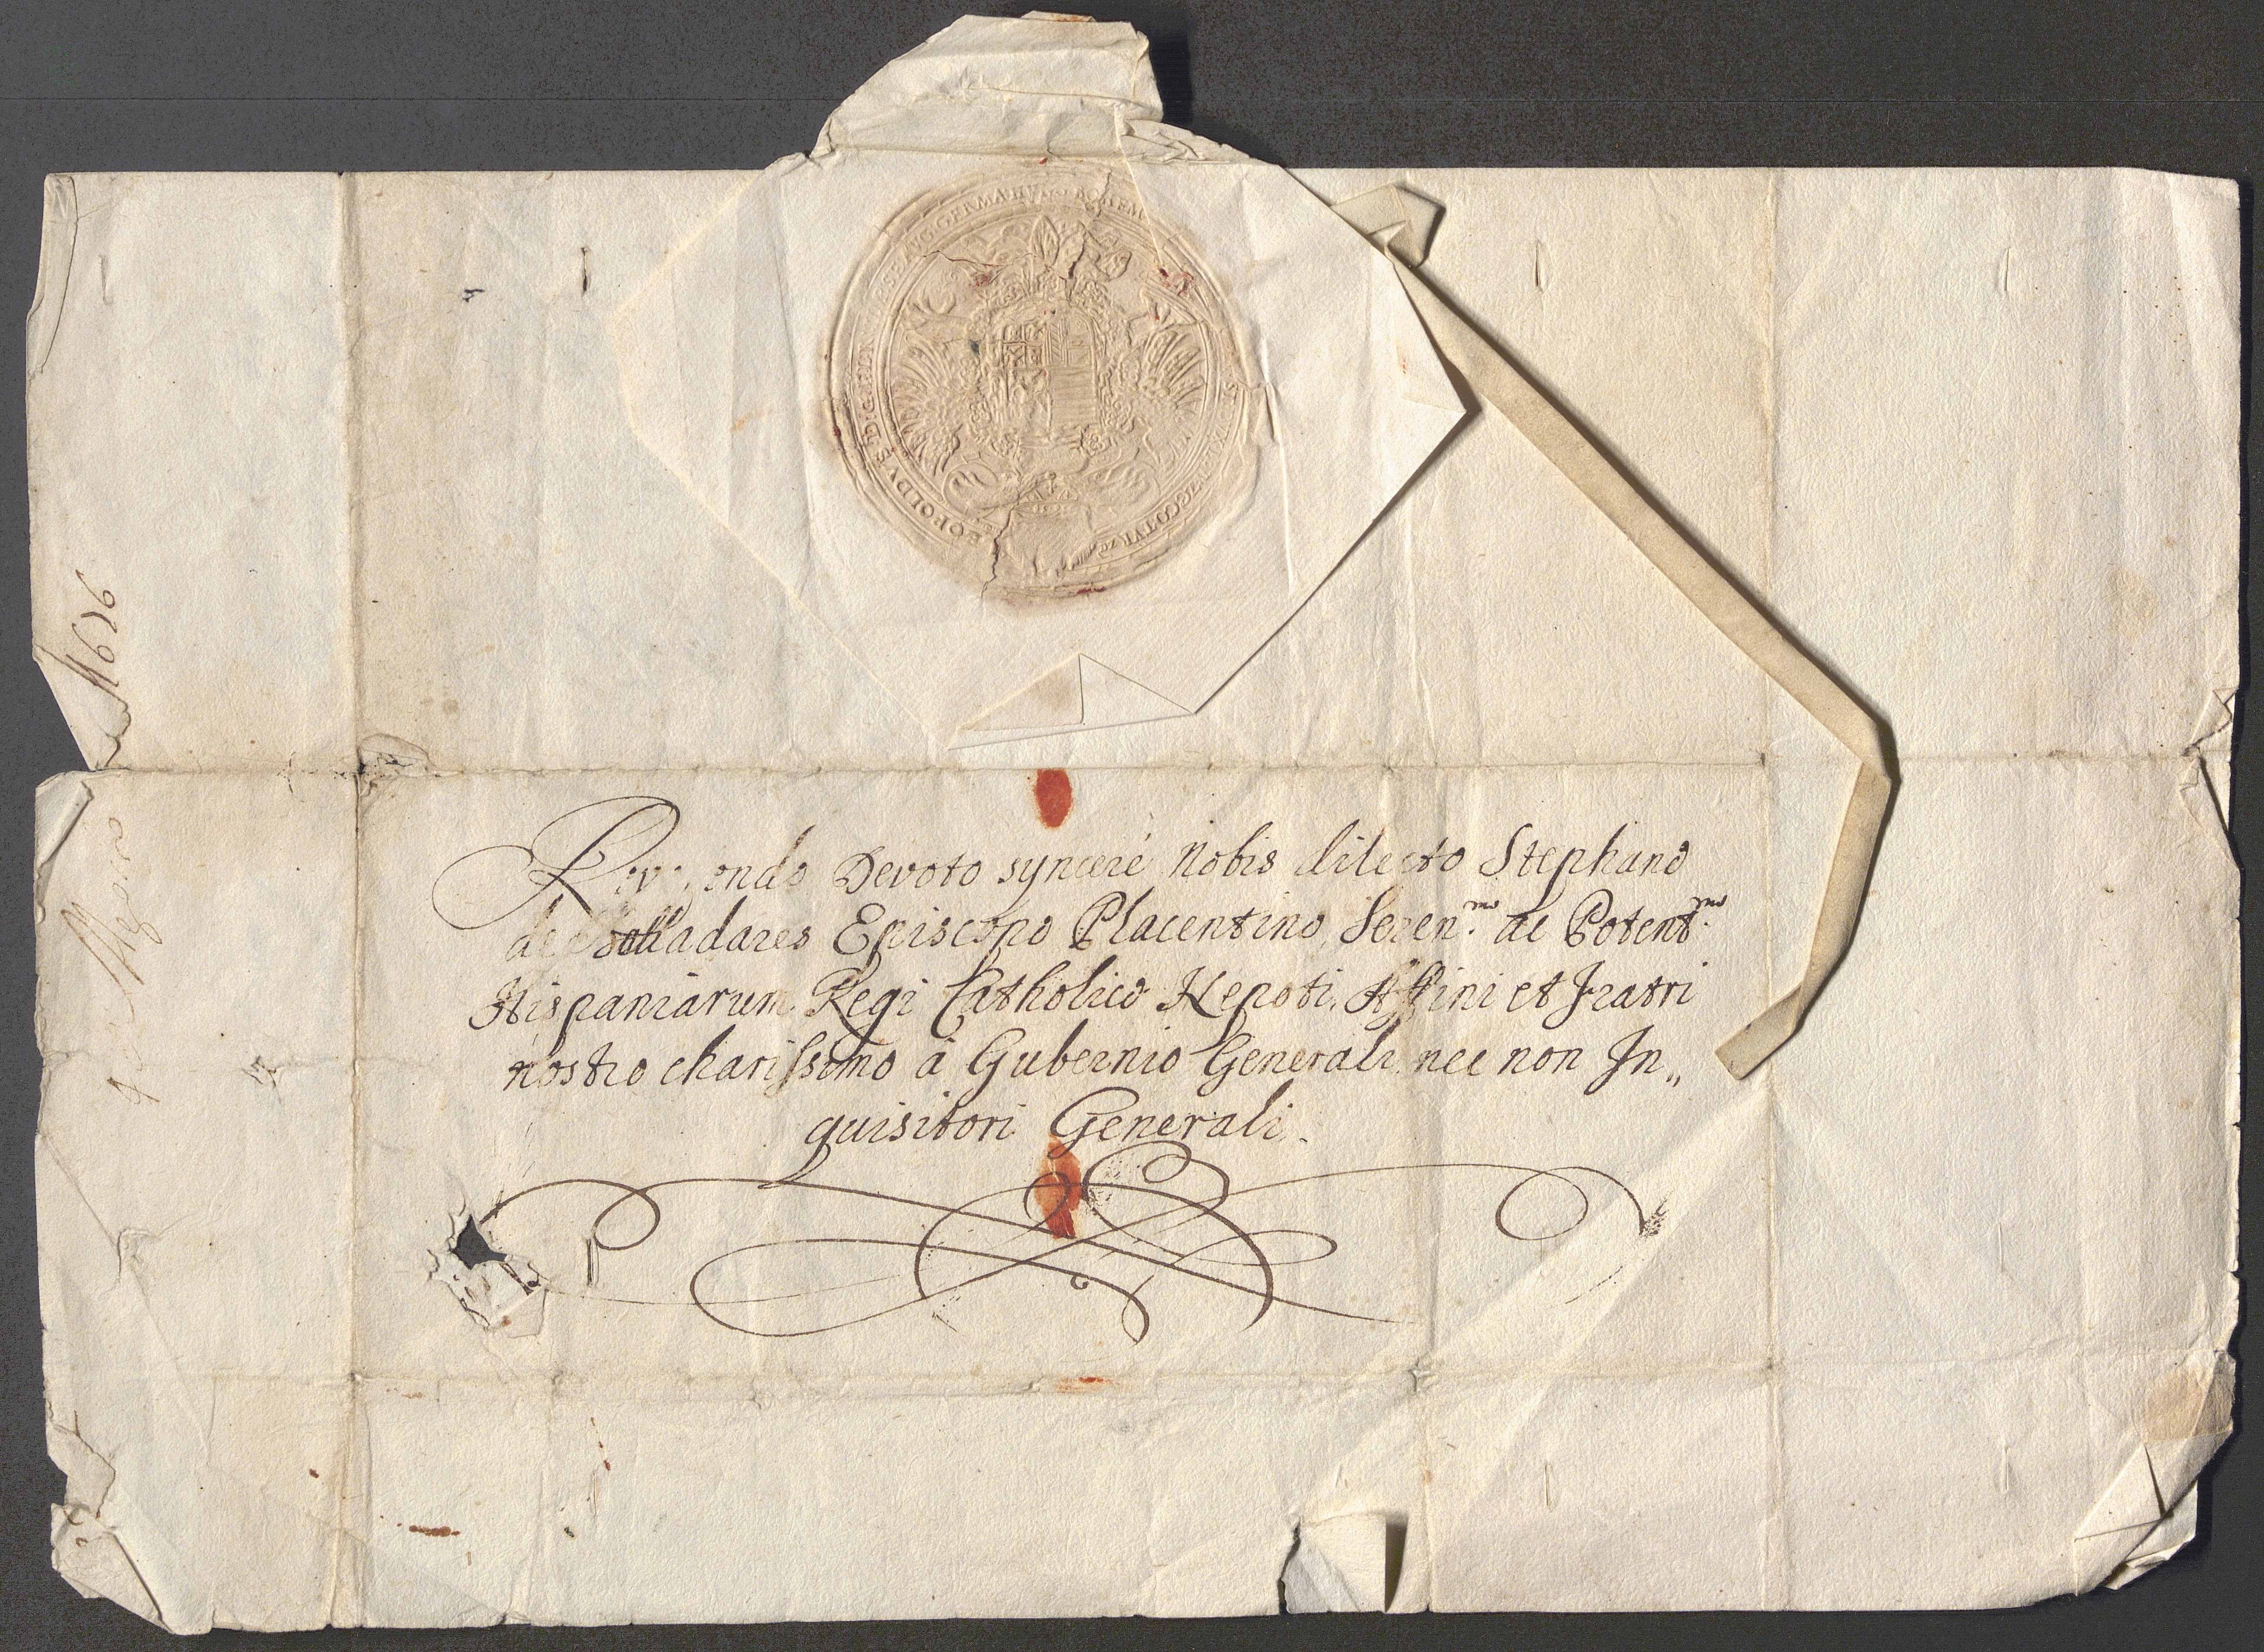 LEOPOLDVS D:G: ROM
SE. AVG. GERMA. HV BOHEM
COTYR
1676
Reverendo Devoto synceré Nobis dilecto Stephano
de Valladares Episcopo Placentino, Seren.mo ac Potent.mo
Hispaniarum Regi Catholico Nepoti, Affini et Fratri
nostro charissimo à Gubernio Generali nec non In„
quisitori Generali.